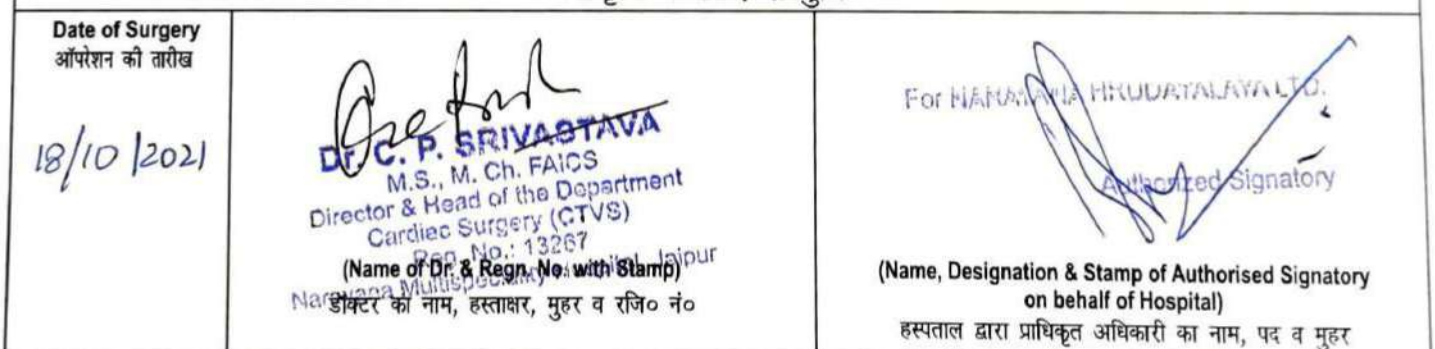 Date of Surgery
ऑपरेशन की तारीख
18/10/2021
Dr. C. P. SRIVASTAVA
M.S., M. Ch. FAICS
Director & Head of the Department
Cardiac Surgery (CTVS)
Reg. No.: 13267
Narayana Multispeciality Hospital, Jaipur
(Name of Dr. & Regn. No. with Stamp)
डॉक्टर का नाम, हस्ताक्षर, मुहर व रजि० नं०
For NARAYANA HRUDAYALAYA LTD.
Authorized Signatory
(Name, Designation & Stamp of Authorised Signatory
on behalf of Hospital)
हस्पताल द्वारा प्राधिकृत अधिकारी का नाम, पद व मुहर